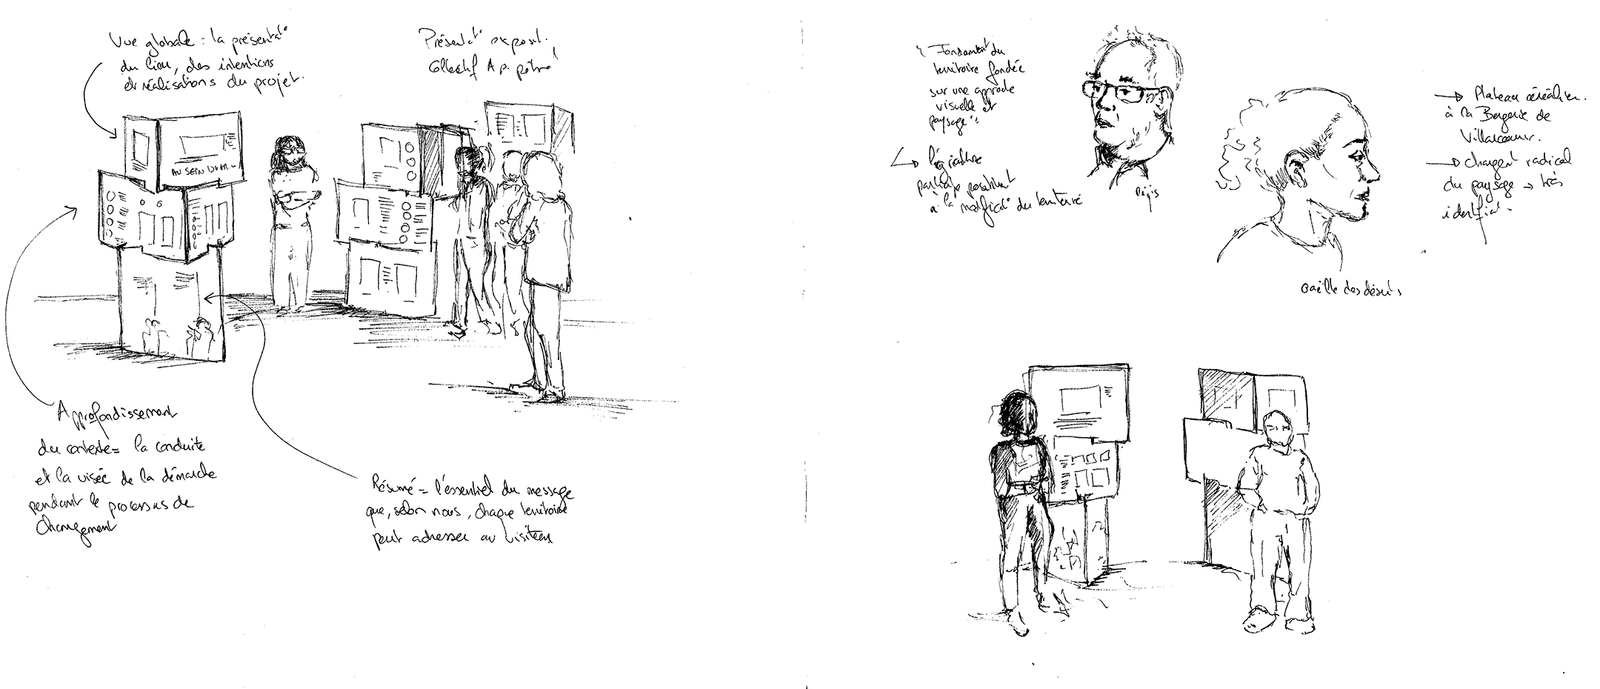 Vue globale : la présentat°
du lieu, des intentions
et réalisations du projet.
Présentat° exposit.
Collectif A p.
AU SEIN D'UN
Approfondissement
du contexte = la conduite
et la visée de la démarche
pendant le processus de
changement
Résumé = l'essentiel du message
que, selon nous, chaque territoire
peut adresser au visiteur
Fondement du
territoire fondée
sur une approche
visuelle et
paysage
participe positivement
à la modificat° du territoire
Régis
des
→ Plateau céréalier
à la Bergerie de
Villarceaux.
→ changent radical
du paysage → très
identifié.